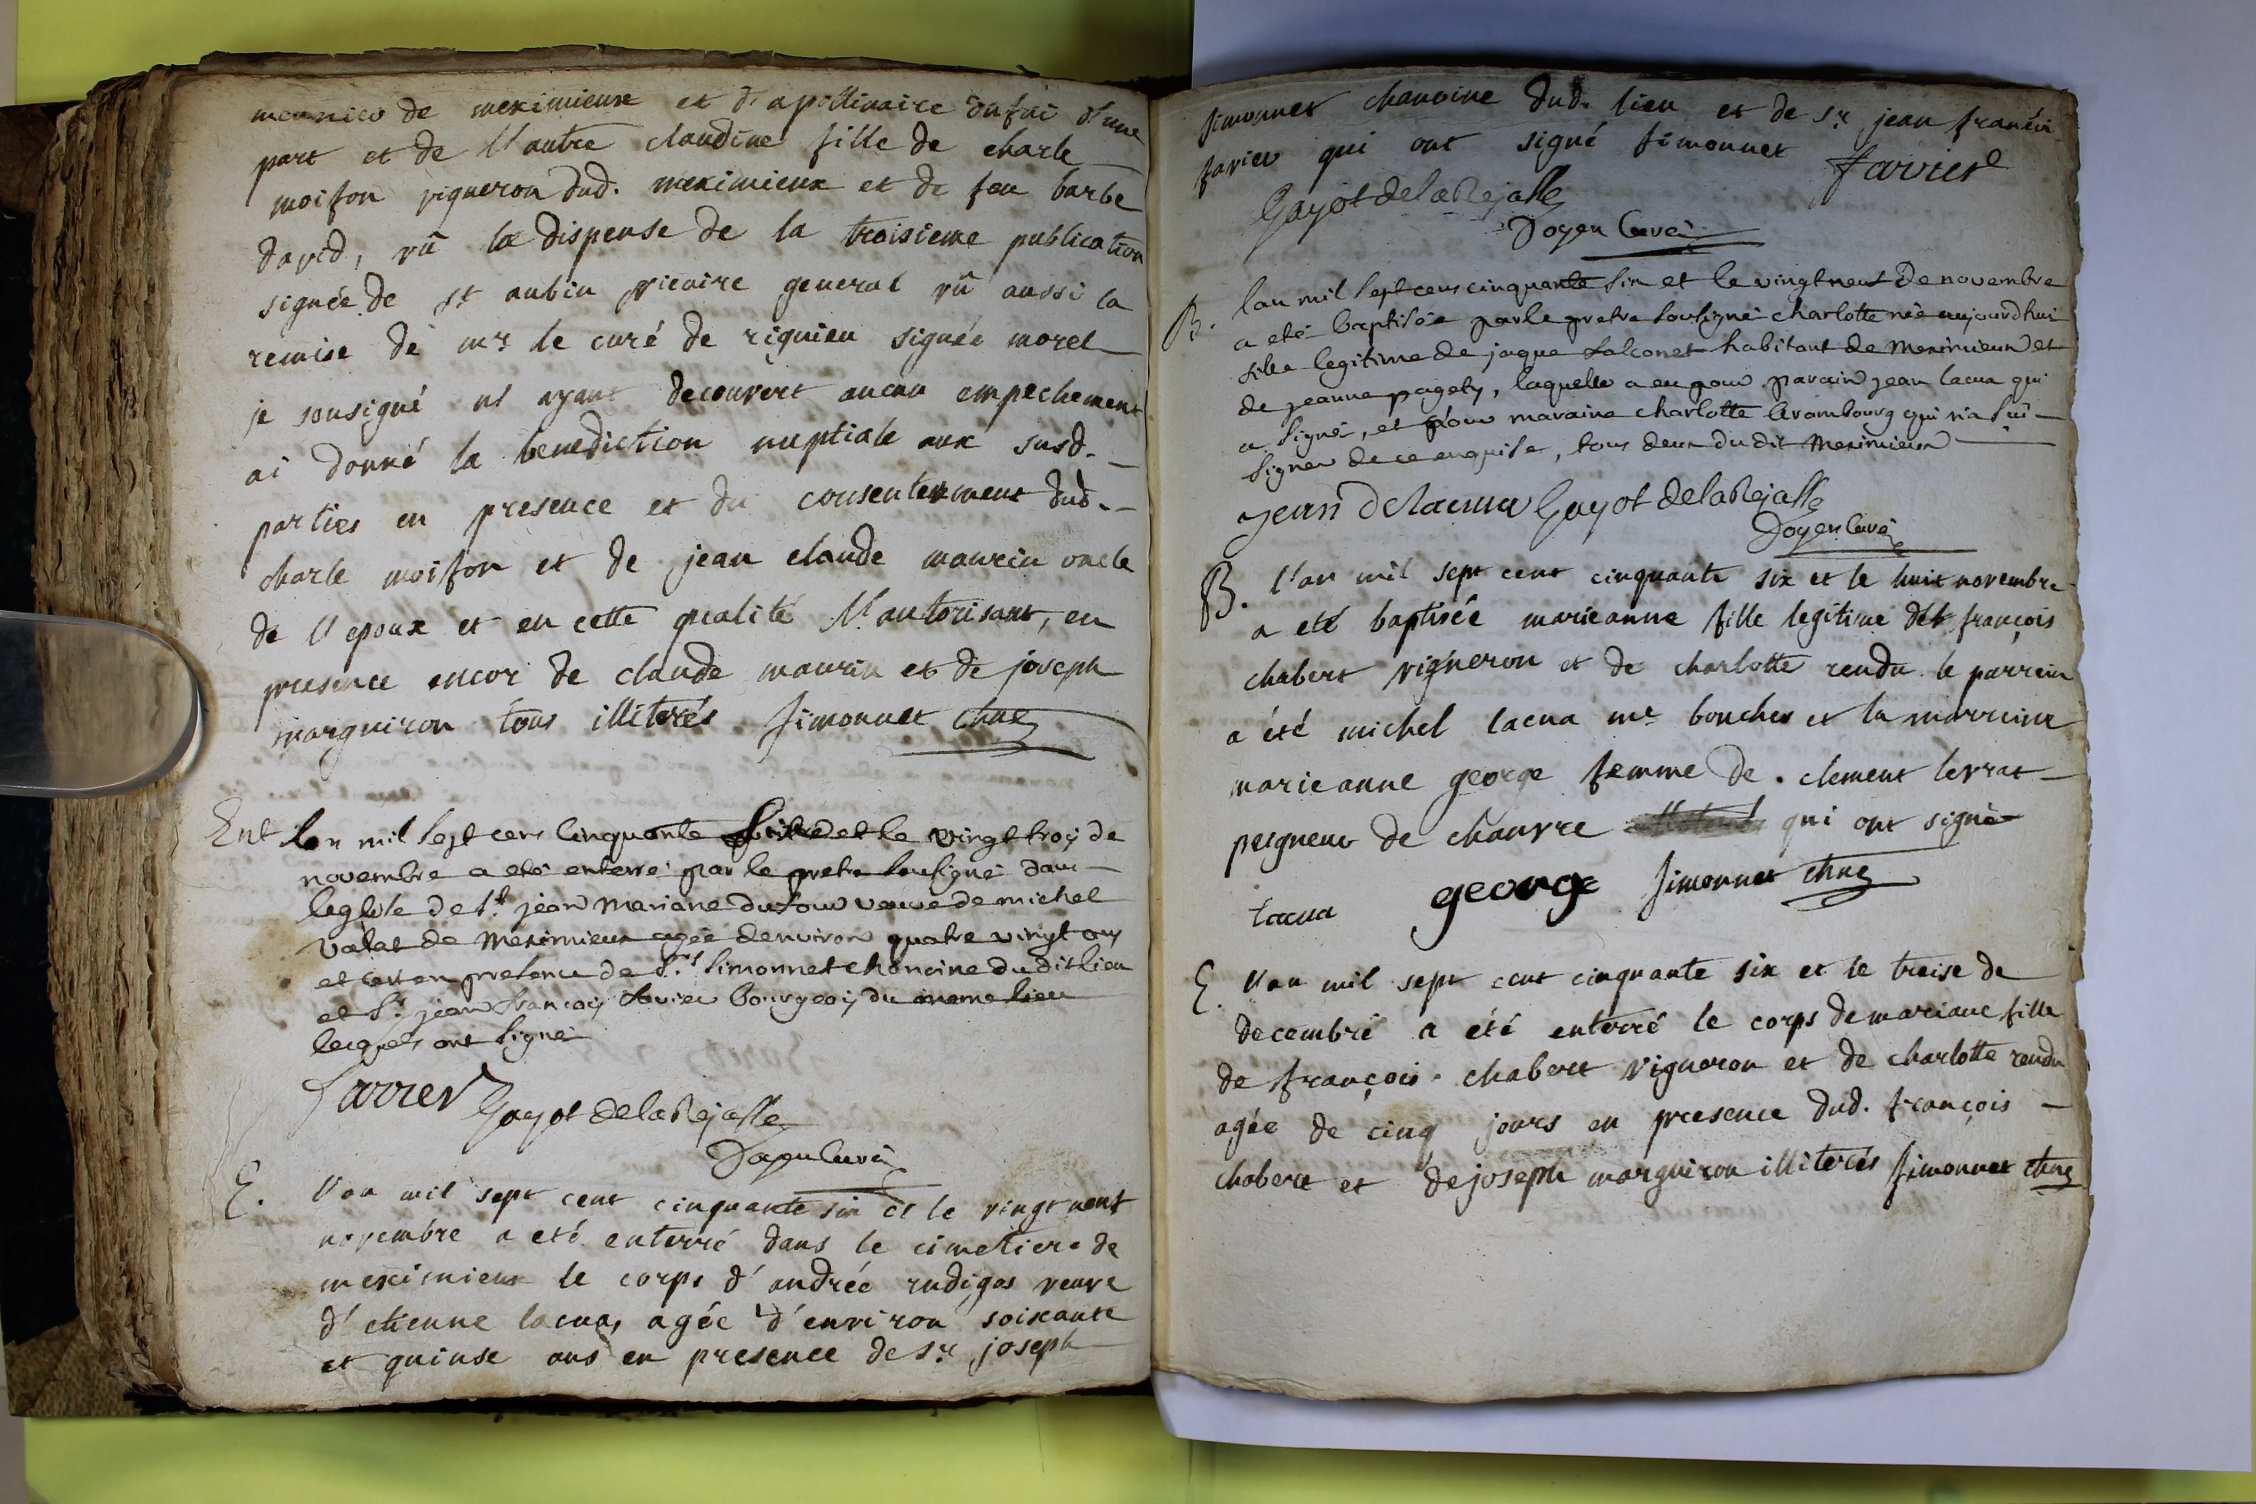 meunier de meximieux et d'apollinaire dufai d'une
part et de l'autre claudine fille de charle
moisson vigneron dud. meximieux et de feu barbe
david, vû la dispense de la troisieme publication
signée de st aubin vicaire general vû aussi la
remise de mr le curé de rignieu signée morel
je sousigné n'ayant decouvert aucun empechement
ai donné la benediction nuptiale aux susd.
parties en presence et du consentement dud.
charle moisson et de jean claude maurin oncle
de l'epoux et en cette qualité l'autorisant, en
presence encor de claude maurin et de joseph
marguiron tous illiterés simonnet chne
Ent lan mil sept cens cinquante et le vingt trois de
novembre a eté enterré par le pretre sousigné dans
leglise de st jean mariane dufour veuve de michel
valat de Meximieux agée denviron quatre vingt ans
et ce en presence de Sr simonnet chanoine du dit lieu
et Sr jean françois favier bourgeois du meme lieu
lesquels ont signé
favier Gayot de la Rejasse
Doyen Curé
E. l'an mil sept cent cinquante six et le vingt neuf
novembre a eté enterré dans le cimetiere de
meximieux le corps d'andrée rudigos veuve
d'etienne lacua, agée d'environ soixante
et quinse ans en presence de Sr joseph
simonnet chanoine dud. lieu et de sr jean françois
favier qui ont signé simonnet favier
Gayot de la Rejasse
Doyen Curé
B. lan mil sept cens cinquante six et le vingt neuf de novembre
a eté baptisée par le pretre sousigné charlotte née aujourdhui
fille legitime de jaque falconet habitant de Meximieux et
de jeanne pagety, laquelle a eu pour parain jean lacua qui
a signé, et pour maraine charlotte Arambourg qui n'a sui
signer de ce enquise, tous deux du dit Meximieux
jean delacua Gayot de la Rejasse
Doyen Curé
B. l'an mil sept cent cinquante six et le huit novembre
a eté baptisée marieanne fille legitime de françois
chabert vigneron et de charlotte rendu le parrein
a été michel lacua me boucher et la marreine
marieanne george femme de clement levrat
peigneur de chanvre qui ont signé
lacua george simonnet chne
E. l'an mil sept cent cinquante six et le treise de
decembre a été enterré le corps de mariane fille
de françois chabert vigneron et de charlotte rendu
agée de cinq jours en presence dud. françois
chabert et de joseph marguiron illiterés simonnet chne